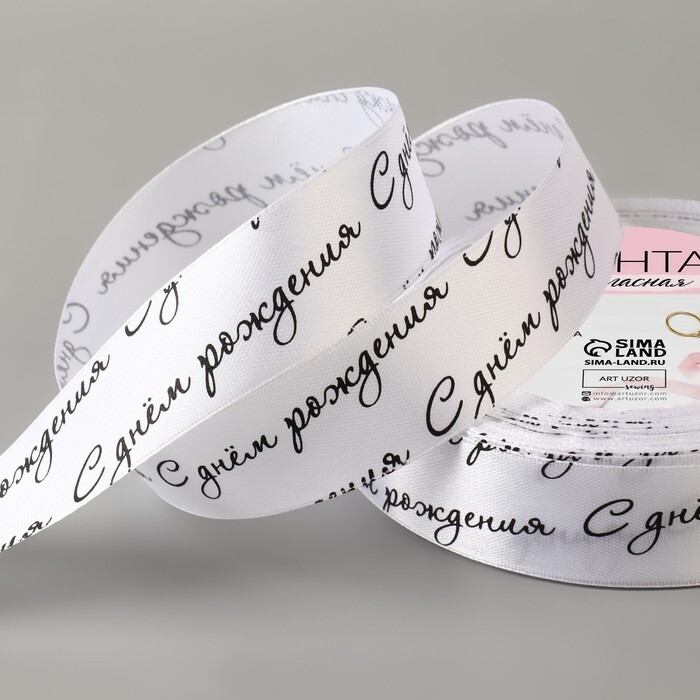 С днём рождения
С днём рождения
С днём рождения
С днём рождения
рождения С
рождения
SIMA
LAND
SIMA-LAND.RU
ART UZOR
sewing
info@artuzor.com
www.artuzor.com